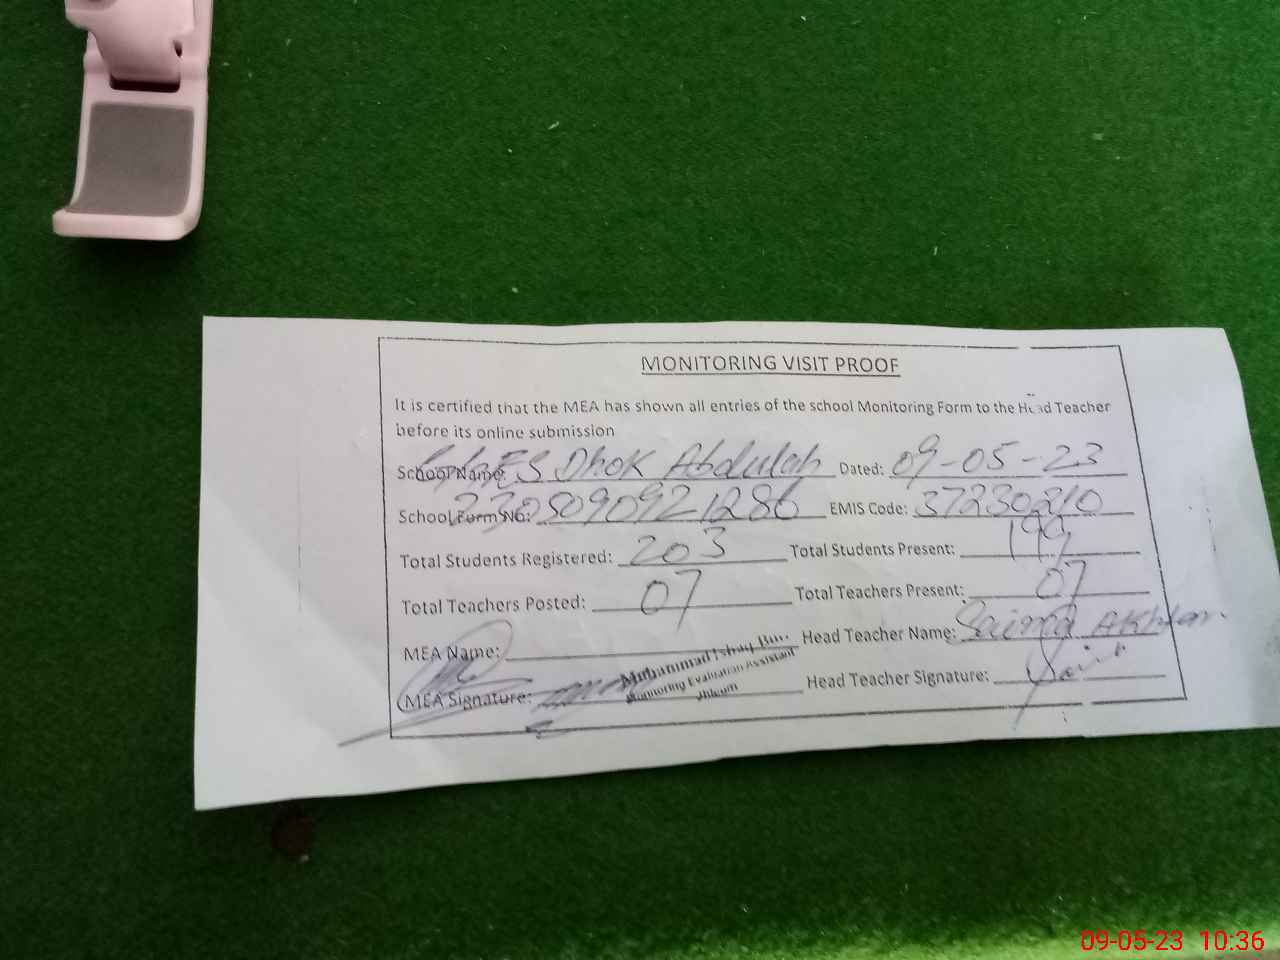 MONITORING VISIT PROOF
It is certified that the MEA has shown all entries of the school Monitoring Form to the Head Teacher
before its online submission
School Name: Dhok Abdulah Dated: 09-05-23
School Form No: EMIS Code: 37230210
Total Students Registered: 203 Total Students Present: 199
Total Teachers Posted: 07 Total Teachers Present: 07
MEA Name: Head Teacher Name: Saima Akhtar
Muhammad Ishaq
Monitoring Evaluation Assistant
Jhelum
MEA Signature: Head Teacher Signature:
09-05-23 10:36